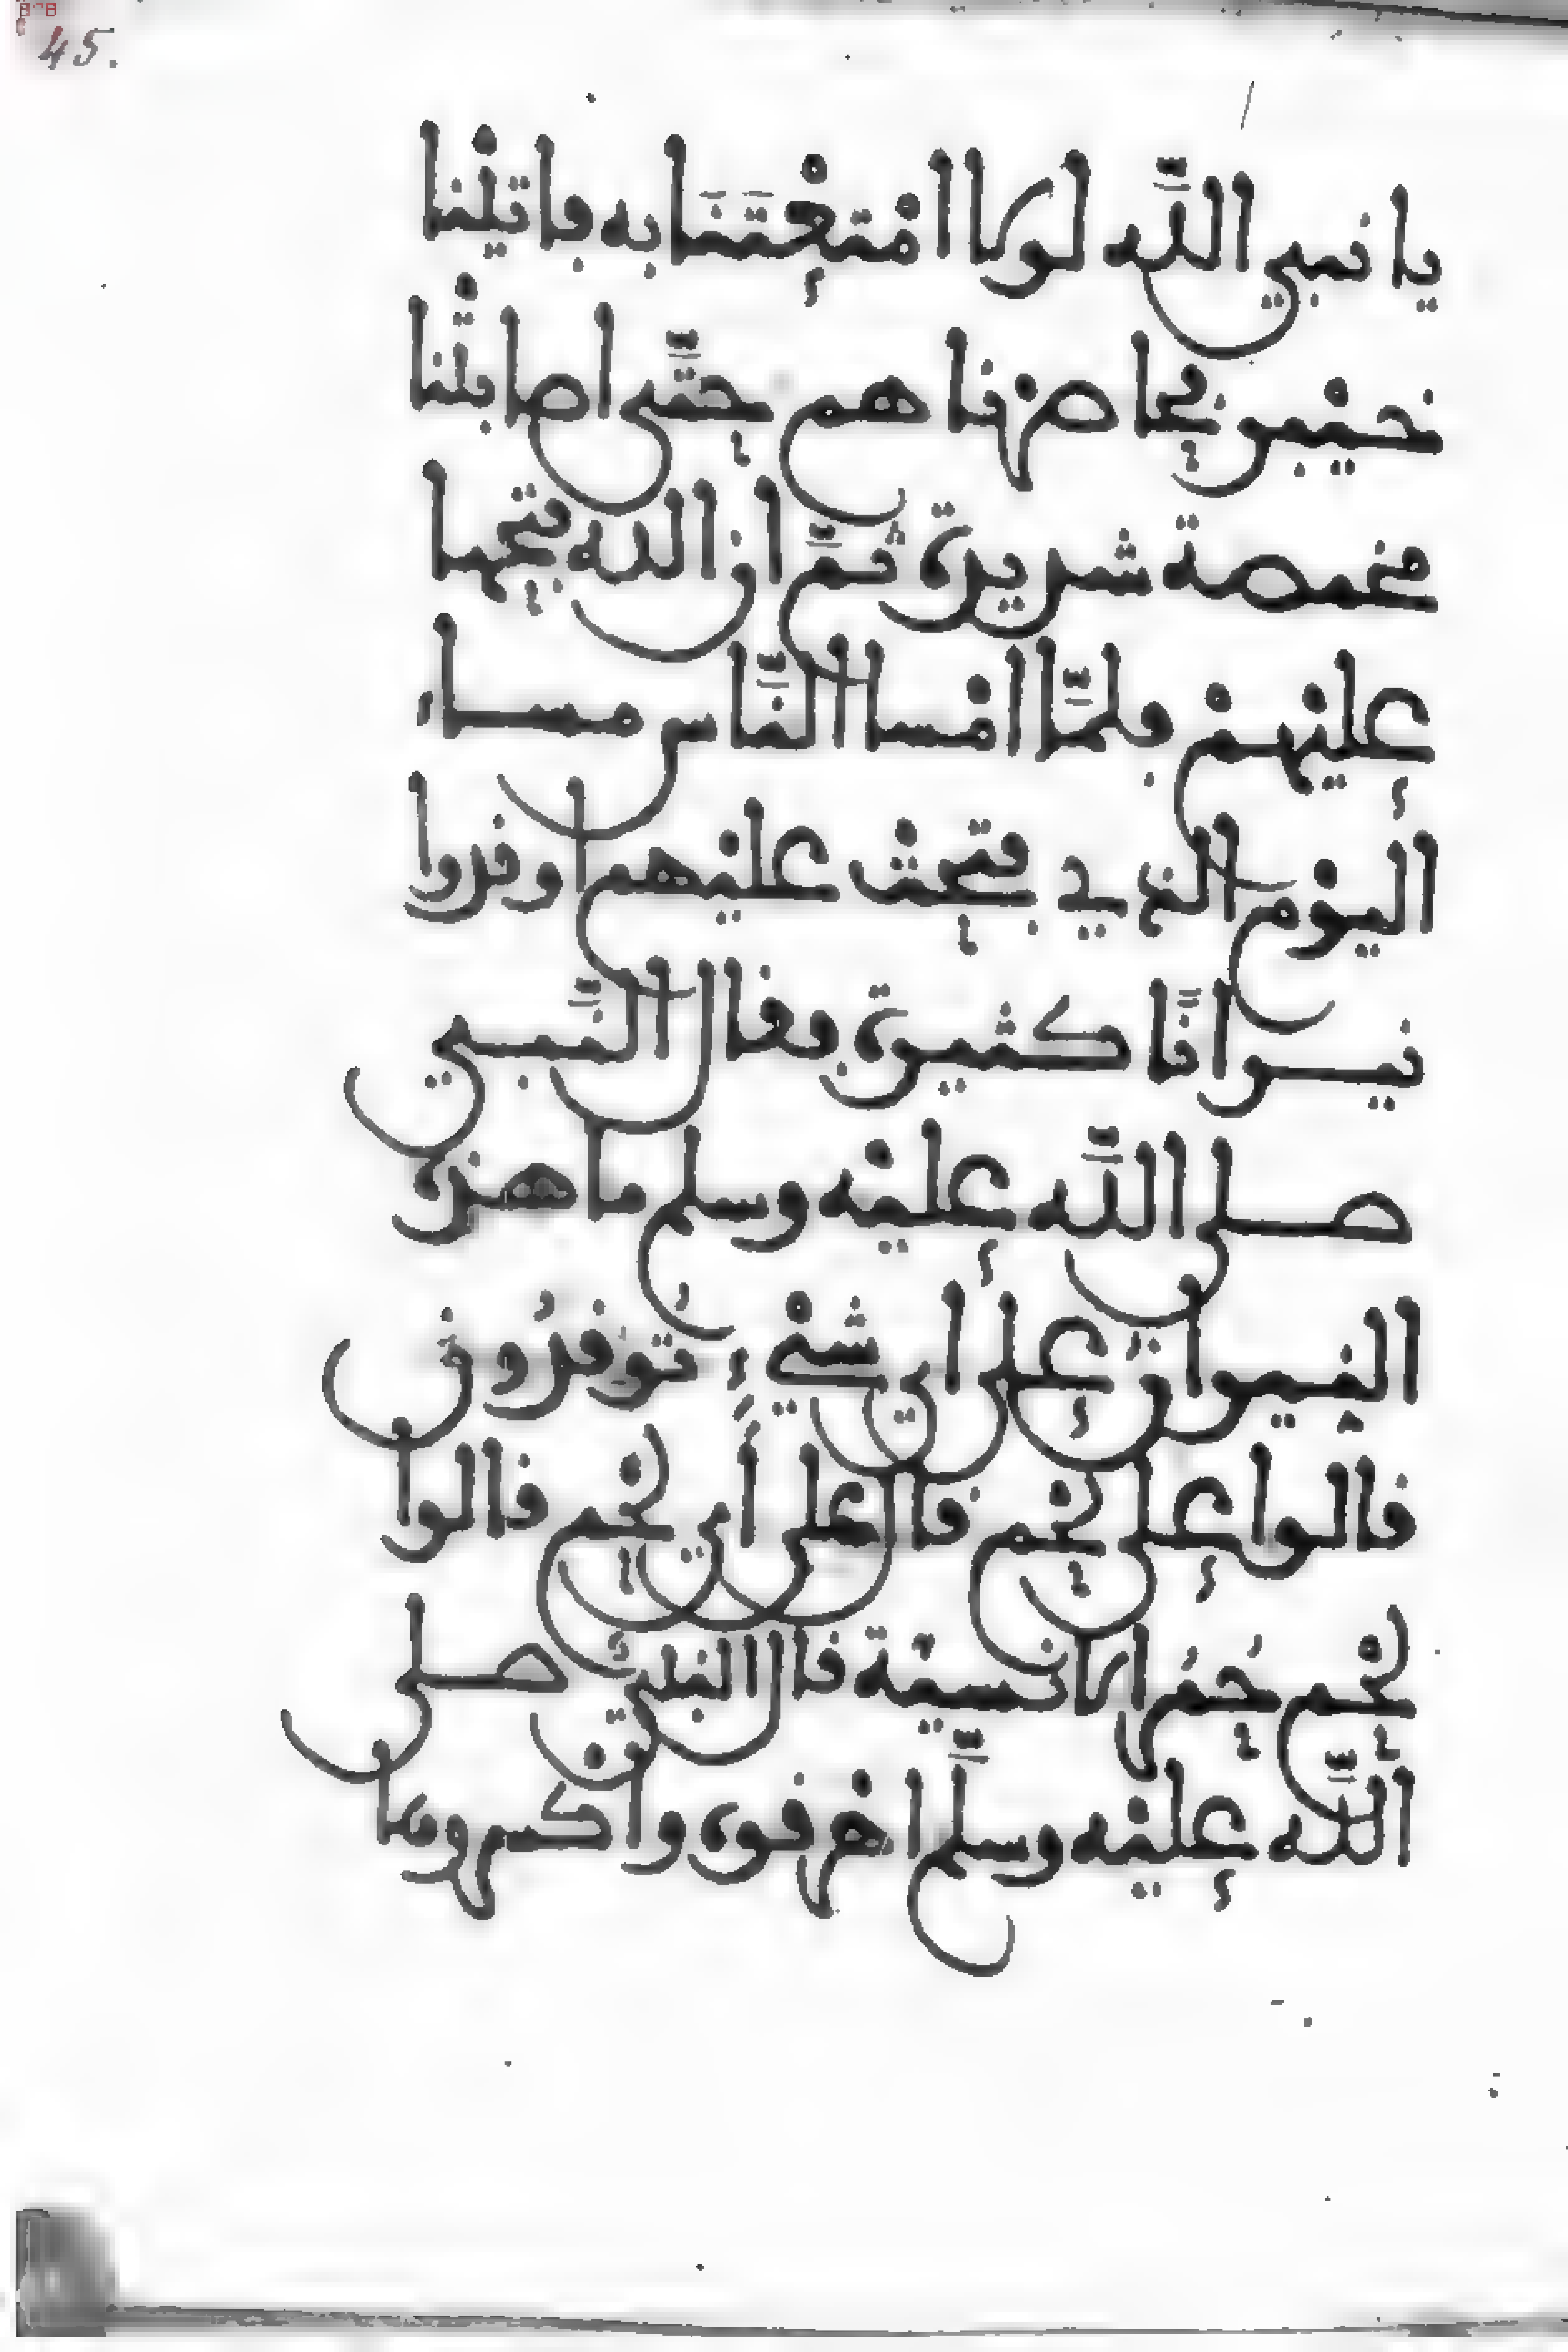 45.
يا نبي اللَّه لولا امْتعْتَنَا به فاتيْنا
خيْبر فحاصرناهم حتَّى اصابتْنا
مخمصة شديدة ثمَّ ان الله فتحها
عليْهمْ فلمَّا امْسا النَّاس مساء
اليوْم الذي فتحتْ عليْهم اوقدوا
نيرانًا كثيرة فقال النَّبي
صلى اللَّه عليْه وسلم ما هذه
النيران على اي شيْء توقدُون
قالوا على لحْم قال على أي لحْم قالوا
لحْم حُمُر الانسيّة قال النبيُّ صلى
اللَّه عليْه وسلَّم اهْرقوها واكسروها